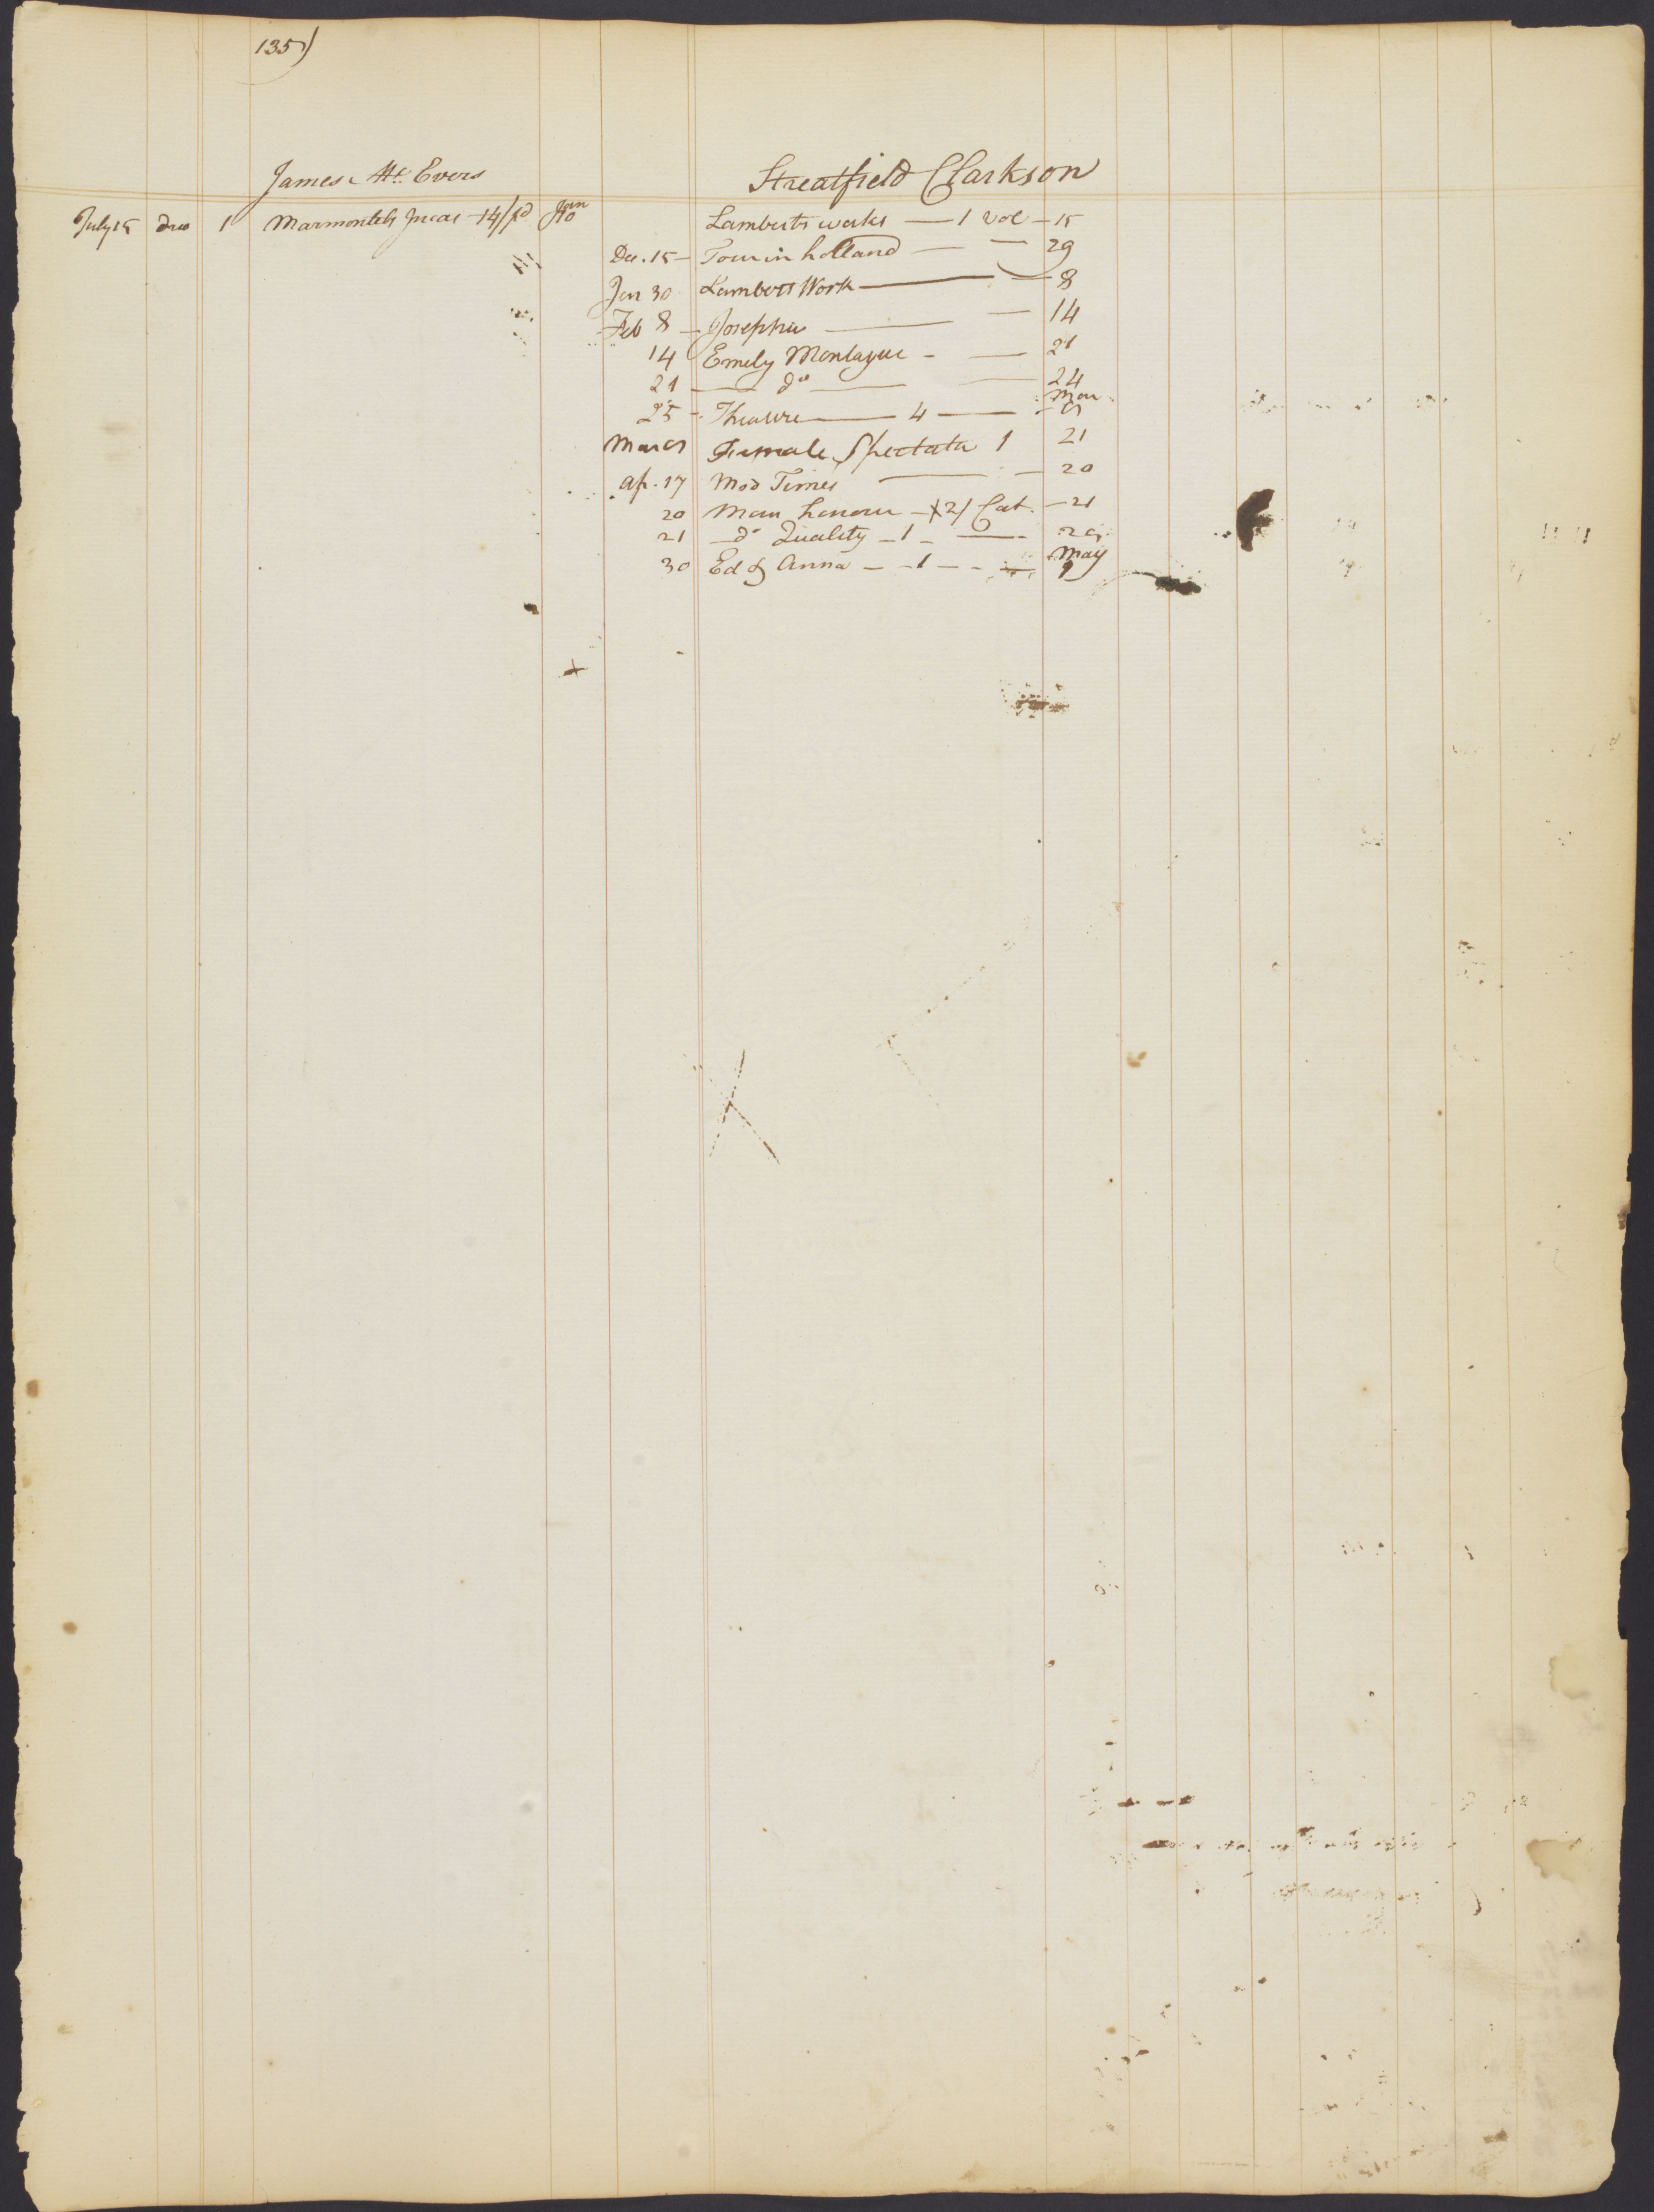 135)
James Mc. Evers
July 15 Duo 1 Marmontels Incas 14/pd Jan 10
Streatfield Clarkson
Lamberts works — 1 vol — 15
Dec. 15 — Tour in holland — — 29
Jan 30 Lamberts Work — — 8
Feb 8 — Josephus — — 14
14 Emely Montague - — 21
21 — do — — 24
25 - Theatre — 4 — Mar 9
Mar 9 Female Spectator 1 21
Ap. 17 Mod Times — — 20
20 Man honour — 2/ Cat. — 21
21 — do Quality — 1 — — 29
30 Ed & Anna — - 1 — - — May 9